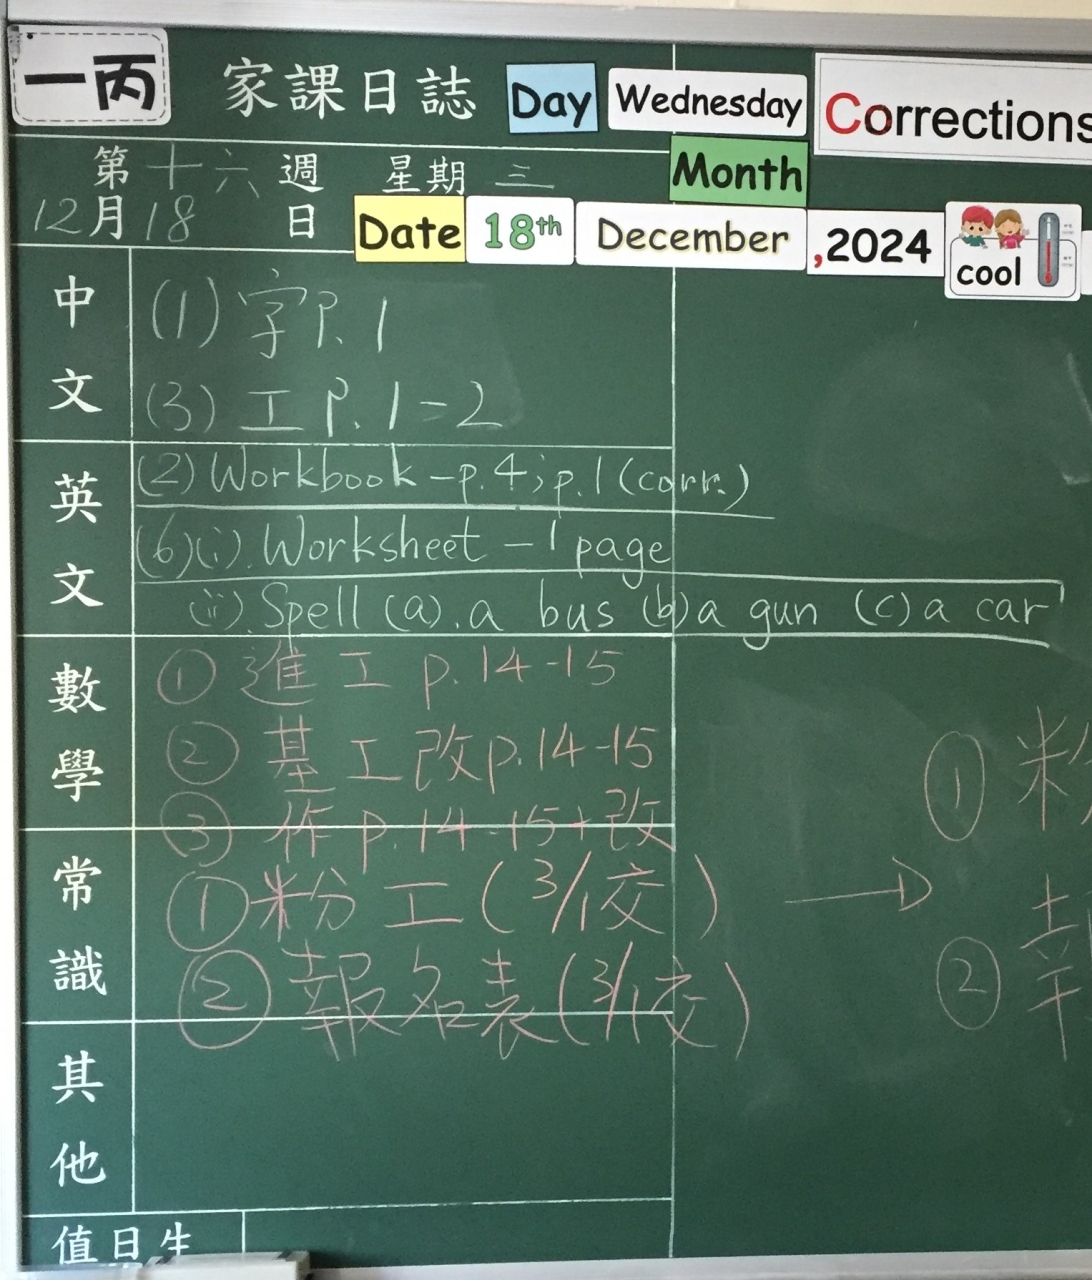 一丙 家課日誌 Day Wednesday Corrections
Month
第十六週 星期三
12月18日 Date 18th December ,2024 cool
中文
(1) 字P. 1
(3) 工P. 1-2
英文
(2) Workbook - p.4; p.1 (corr.)
(6)(i). Worksheet - 1 page
(ii). Spell (a). a bus (b) a gun (c) a car
數學
① 進工 p.14-15
② 基工改p.14-15
③ 作p.14-15+改
常識
①粉工(3/1交) → ① 粉
②報名表(3/1交) ②
其他
值日生